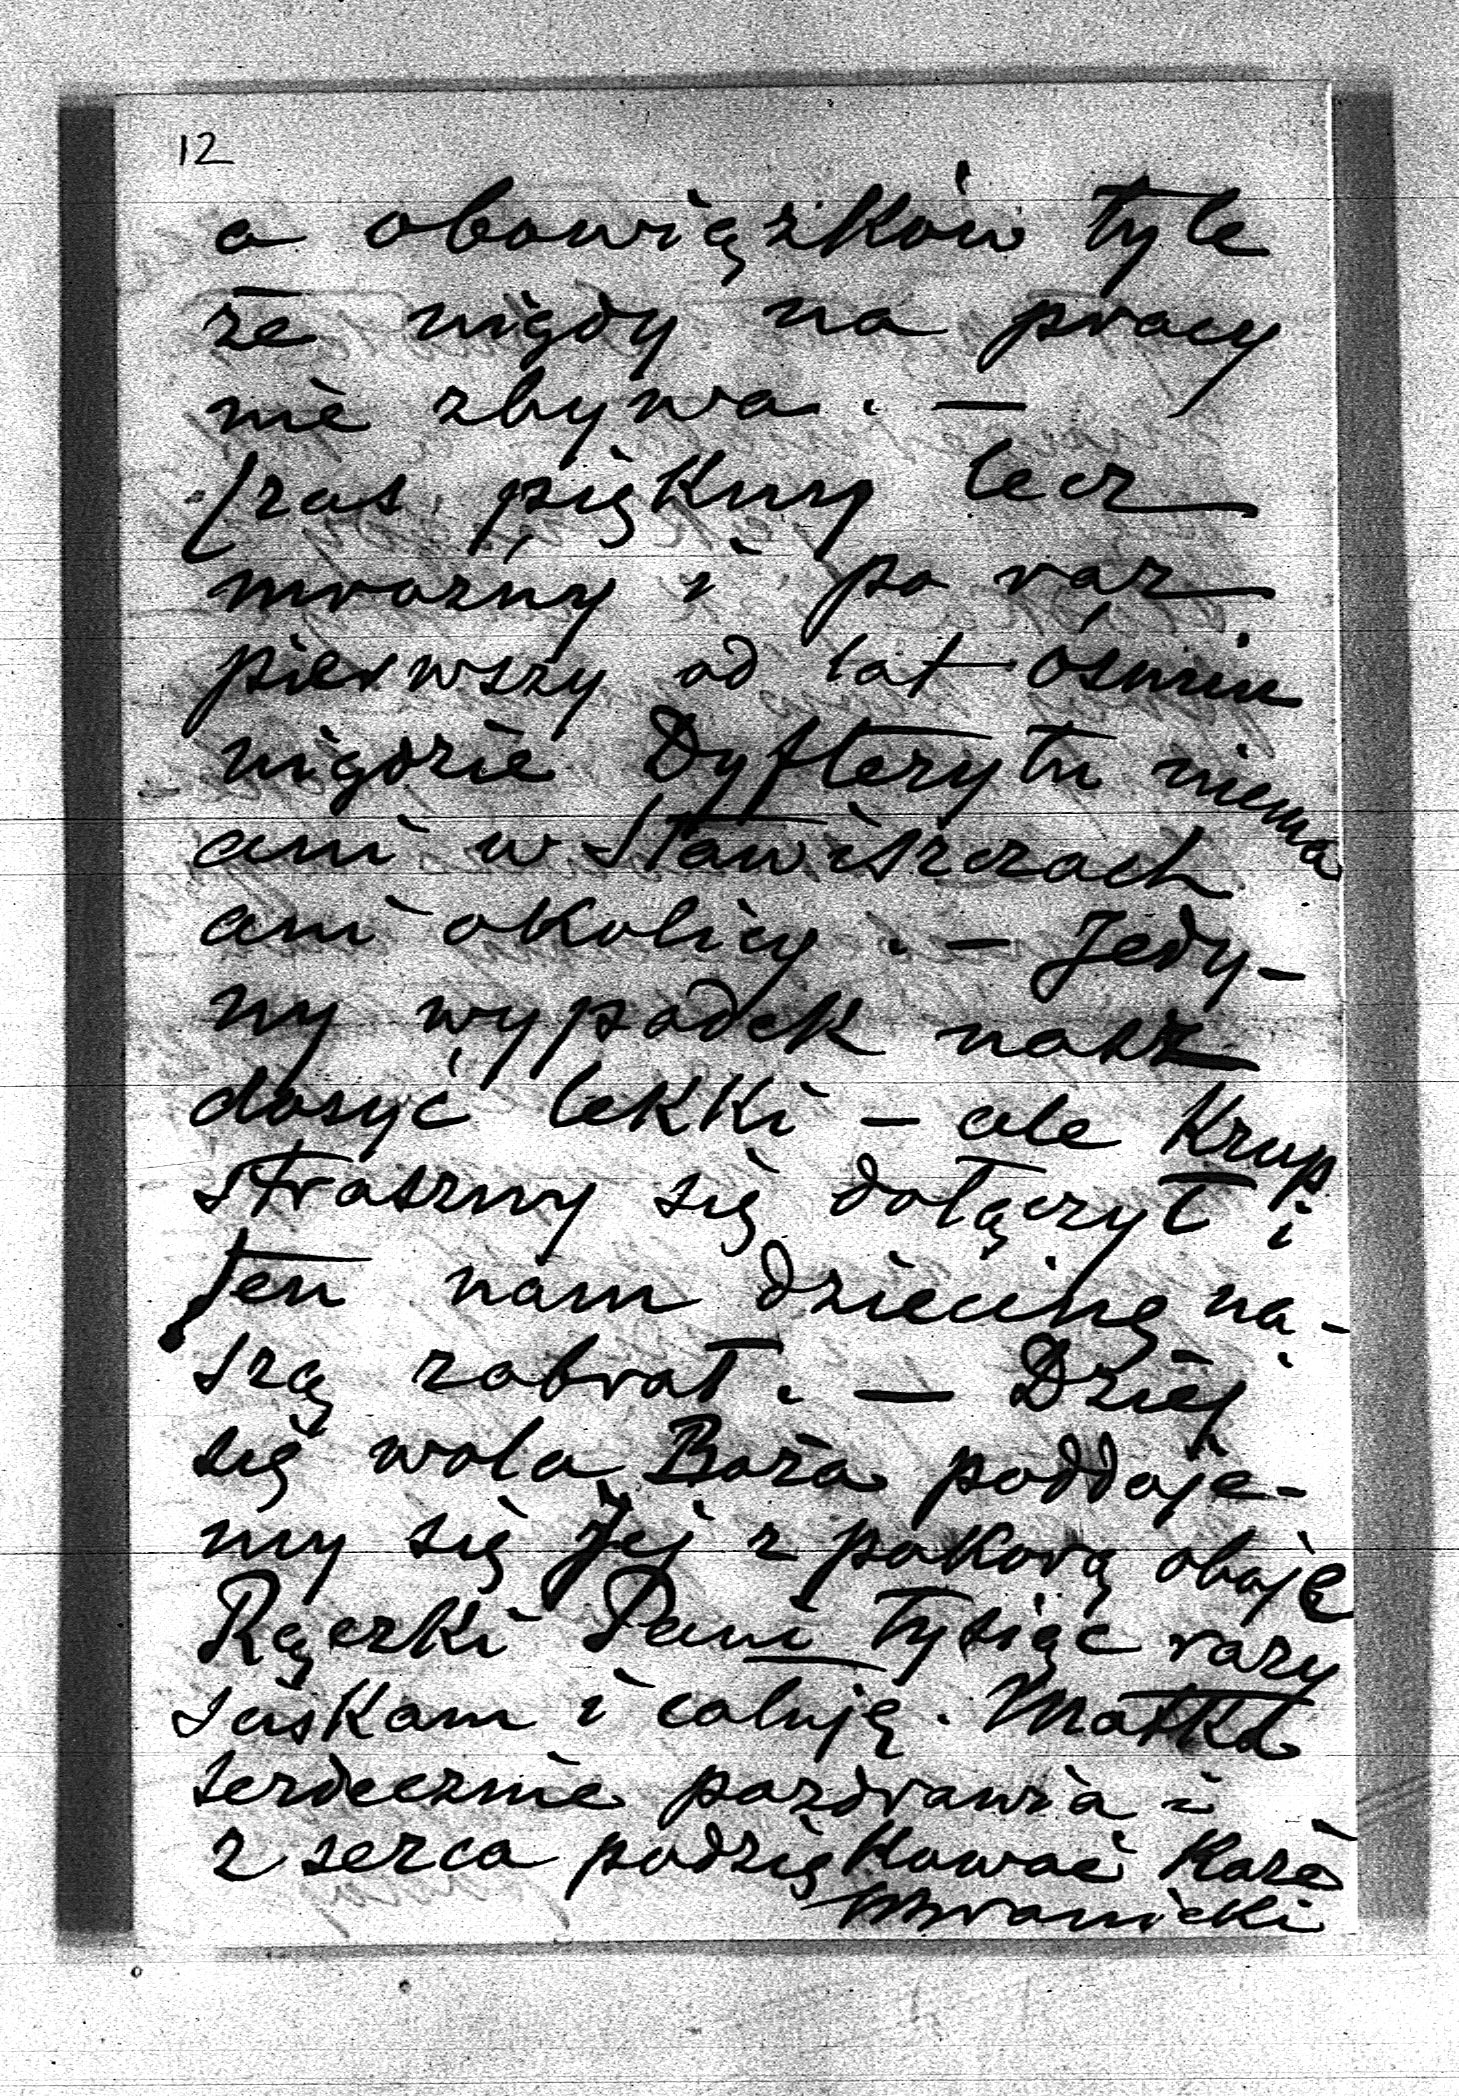 12
a obowiązków tyle
że nigdy na pracy
nie zbywa. —
Czas piękny lecz
mroźny i po raz
pierwszy od lat ośmiu
nigdzie Dyfterytu niema
ani w Stawiszczach
ani okolicy. — Jedy-
ny wypadek nasz
dosyć lekki — ale Krup
straszny się dołączył i
ten nam dziecinę na-
szą zabrał. — Dziej
się wola Boża poddaje-
my się Jej z pokorą oboje
Rączki Pani tysiąc razy
ściskam i całuję. Matka
serdecznie pozdrawia i
z serca podziękować każe
WBranicki